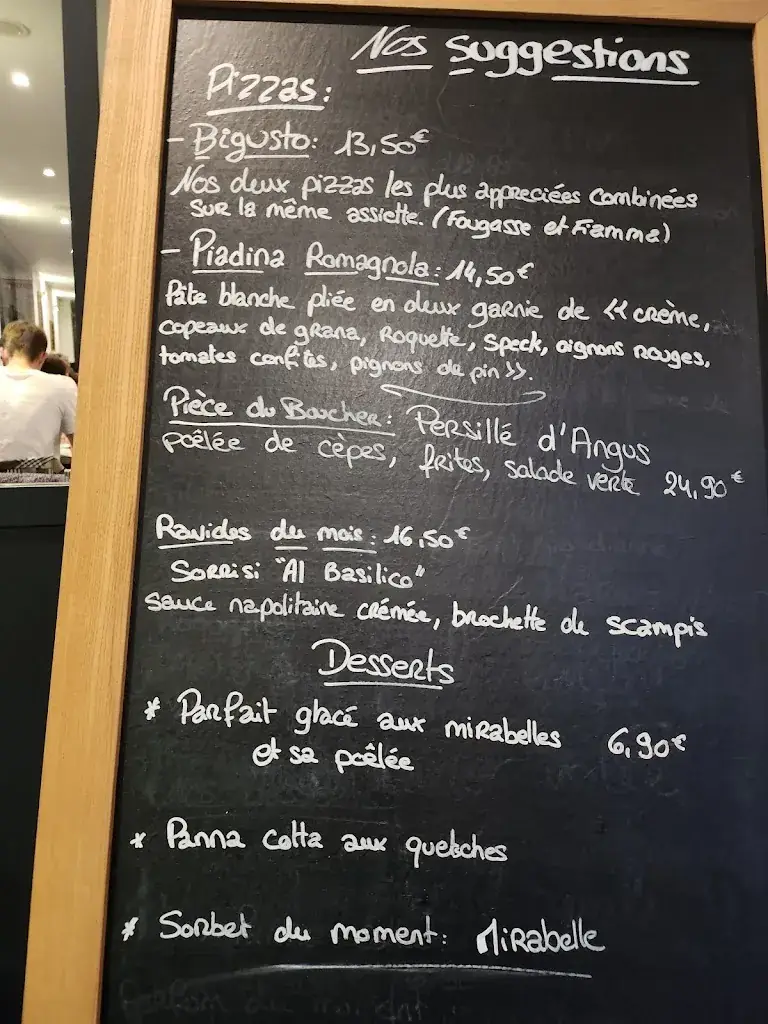 Nos suggestions
Pizzas:
- Bigusto: 13,50€
Nos deux pizzas les plus appreciées combinées
sur la même assiette. (Fougasse et Fiamma)
- Piadina Romagnola: 14,50€
Pâte blanche pliée en deux garnie de << crème,
copeaux de grana, Roquette, speck, oignons rouges,
tomates confites, pignons de pin >>.
Pièce du Boucher: Persillé d'Angus
poêlée de cèpes, frites, salade verte 24,90€
Ravioles du mois: 16,50€
Sorrisi "Al Basilico"
sauce napolitaine crémée, brochette de scampis
Desserts
* Parfait glacé aux mirabelles 6,90€
et sa poêlée
* Panna cotta aux quetsches
* Sorbet du moment: Mirabelle